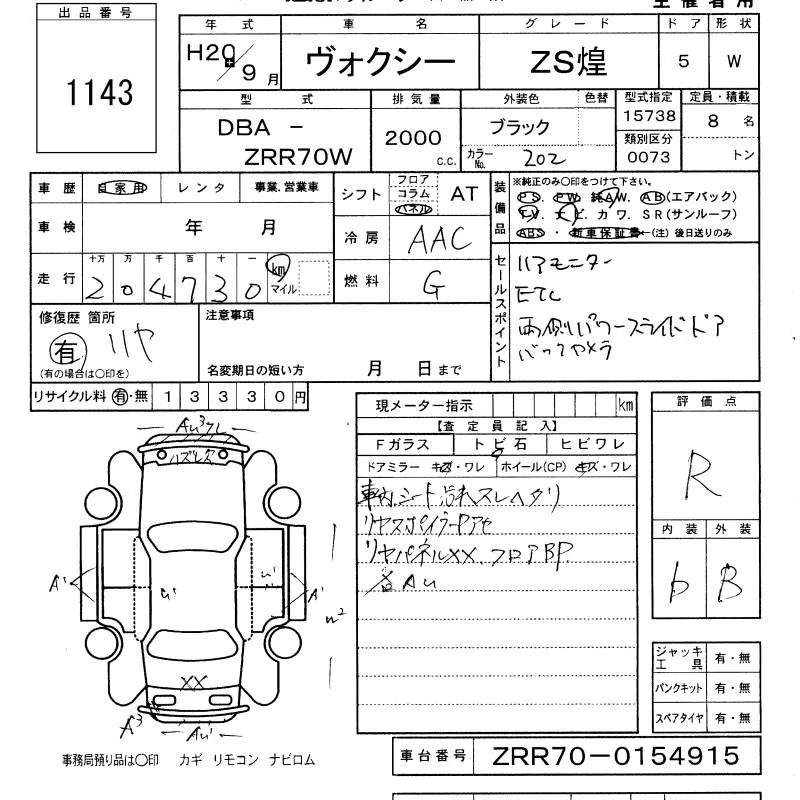 出品番号
1143
年式
H20/9月
車名
ヴォクシー
グレード
ZS煌
ドア
5
形状
W
型式
DBA -
ZRR70W
排気量
2000
c.c.
外装色
色替
ブラック
カラーNo.
202
型式指定
15738
類別区分
0073
定員・積載
8名
トン
車歴
自家用
レンタ
事業、営業車
車検
年 月
走行
十万 万 千 百 十 一
2 0 4 7 3 0
km
マイル
シフト
フロア
コラム
パネル
AT
冷房
AAC
燃料
G
装備品
※純正のみ〇印をつけて下さい。
P S. P W. 純A W. A B (エアバック)
T V. ナ ビ. カ ワ. S R (サンルーフ)
ABS ・ 新車保証書←(注)後日送りのみ
セールスポイント
リアモニター
ETC
両側パワースライドドア
バックカメラ
修復歴 箇所
有
リヤ
(有の場合は〇印を)
注意事項
名変期日の短い方 月 日まで
リサイクル料 有・無 1 3 3 3 0 円
現メーター指示
km
【査定員記入】
Fガラス
トビ石
ヒビワレ
ドアミラー キズ・ワレ
ホイール(CP) キズ・ワレ
車内、シート汚れスレヘタリ
リヤスポイラードアセ
リヤパネルXX、フロアBP
各AU
評価点
R
内装
b
外装
B
ジャッキ工具 有・無
パンクキット 有・無
スペアタイヤ 有・無
ハズレ
A'
A'
XX
A3
事務局預り品は〇印 カギ リモコン ナビロム
車台番号
ZRR70-0154915